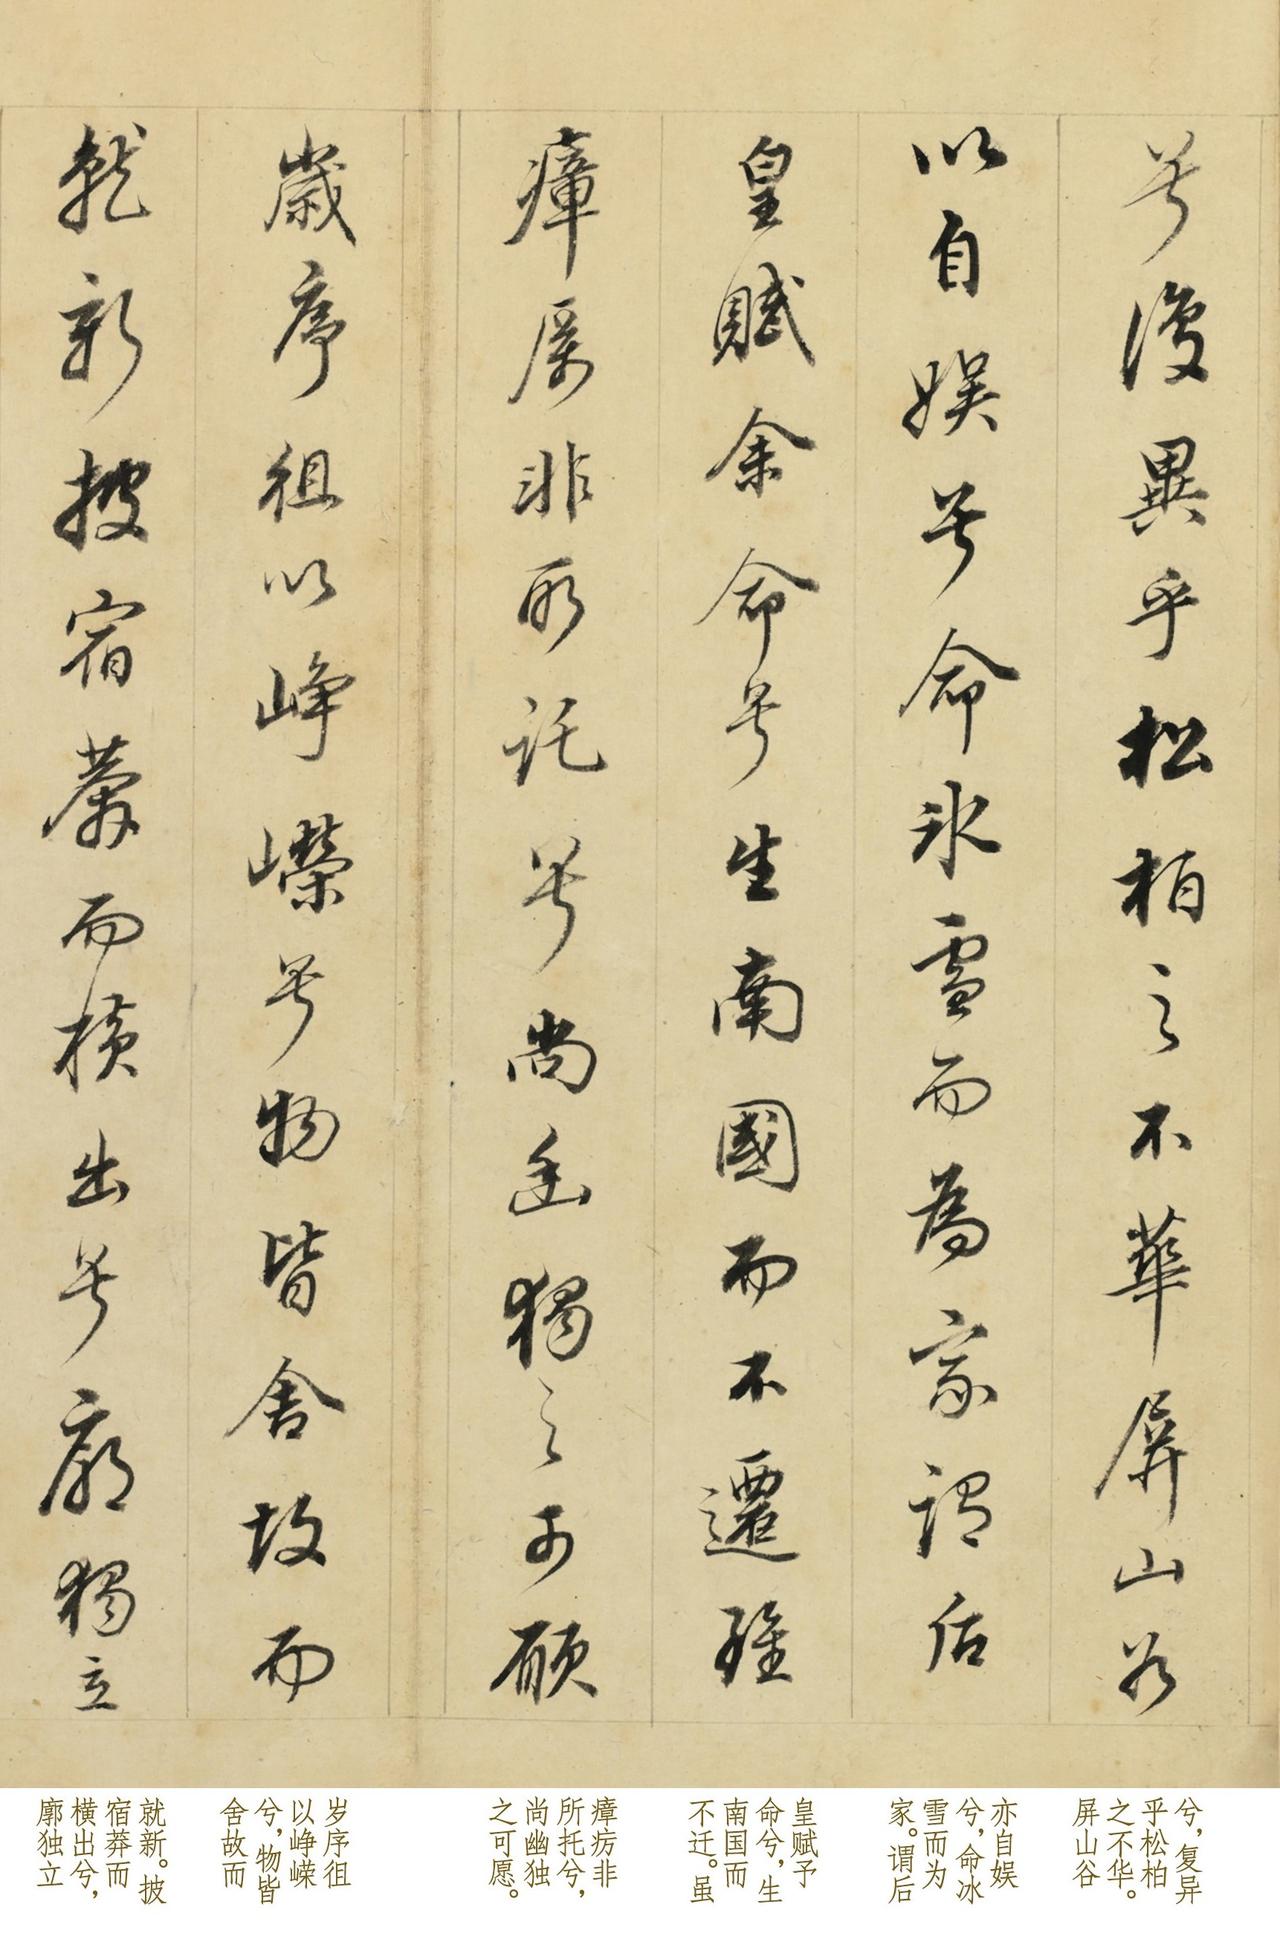 兮復異乎松柏之不華屏山谷
以自娱兮命氷雪而為家謂后
皇賦余命兮生南國而不遷雖
瘴厲非所託兮尚幽獨之可願
歲序徂以崢嶸兮物皆舍故而
就新披宿莽而横出兮廓獨立
兮，复异
乎松柏
之不华。
屏山谷
亦自娱
兮，命冰
雪而为
家。谓后
皇赋予
命兮，生
南国而
不迁。虽
瘴疠非
所托兮，
尚幽独
之可愿。
岁序徂
以峥嵘
兮，物皆
舍故而
就新。披
宿莽而
横出兮，
廓独立